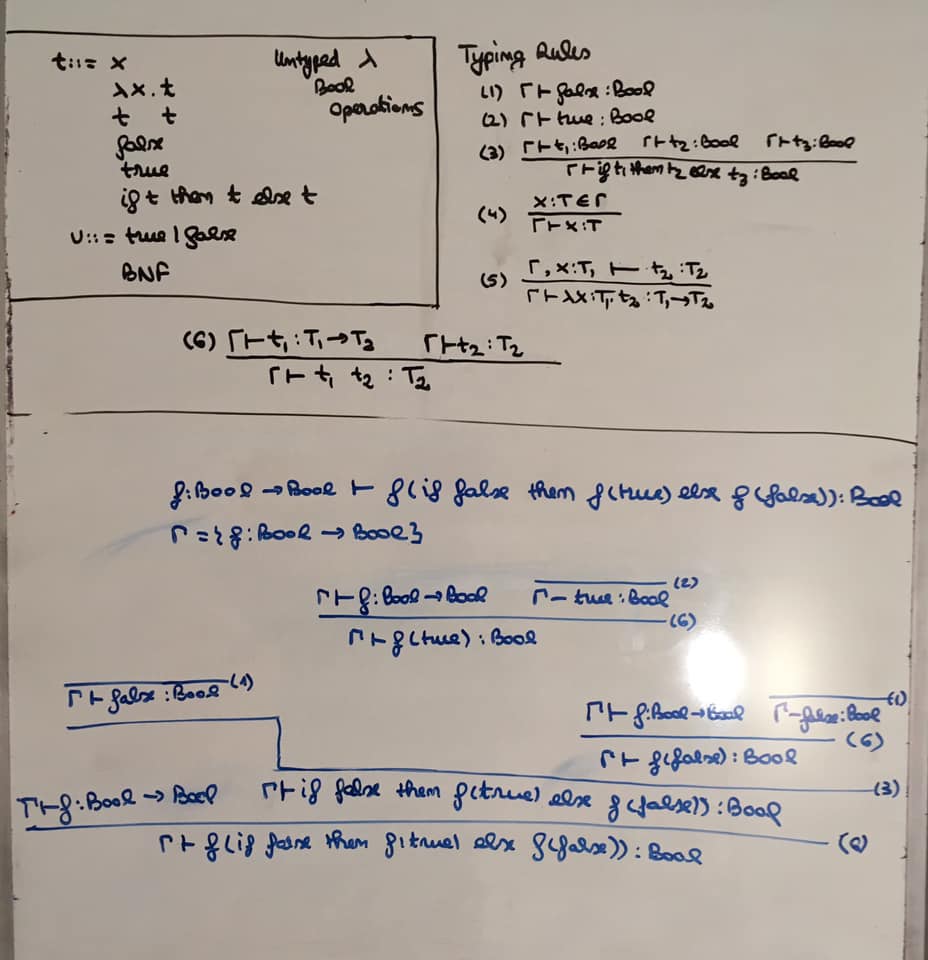 t::= x
λx.t
t t
false
true
if t then t else t
v::= true | false
BNF
Untyped λ
Bool
Operations
Typing Rules
(1) Γ ⊢ false : Bool
(2) Γ ⊢ true : Bool
(3) Γ ⊢ t₁ : Bool Γ ⊢ t₂ : Bool Γ ⊢ t₃ : Bool
Γ ⊢ if t₁ then t₂ else t₃ : Bool
(4) x : T ∈ Γ
Γ ⊢ x : T
(5) Γ, x : T₁ ⊢ t₂ : T₂
Γ ⊢ λx : T₁. t₂ : T₁ → T₂
(6) Γ ⊢ t₁ : T₁ → T₂ Γ ⊢ t₂ : T₂
Γ ⊢ t₁ t₂ : T₂
f : Bool → Bool ⊢ f (if false then f (true) else f (false)) : Bool
Γ = { f : Bool → Bool }
Γ ⊢ f : Bool → Bool Γ – true : Bool (2)
(6)
Γ ⊢ f (true) : Bool
Γ ⊢ false : Bool (1)
Γ ⊢ f : Bool → Bool Γ – false : Bool (1)
(6)
Γ ⊢ f (false) : Bool
(3)
Γ ⊢ f : Bool → Bool Γ ⊢ if false then f (true) else f (false)) : Bool
Γ ⊢ f (if false then f (true) else f (false)) : Bool